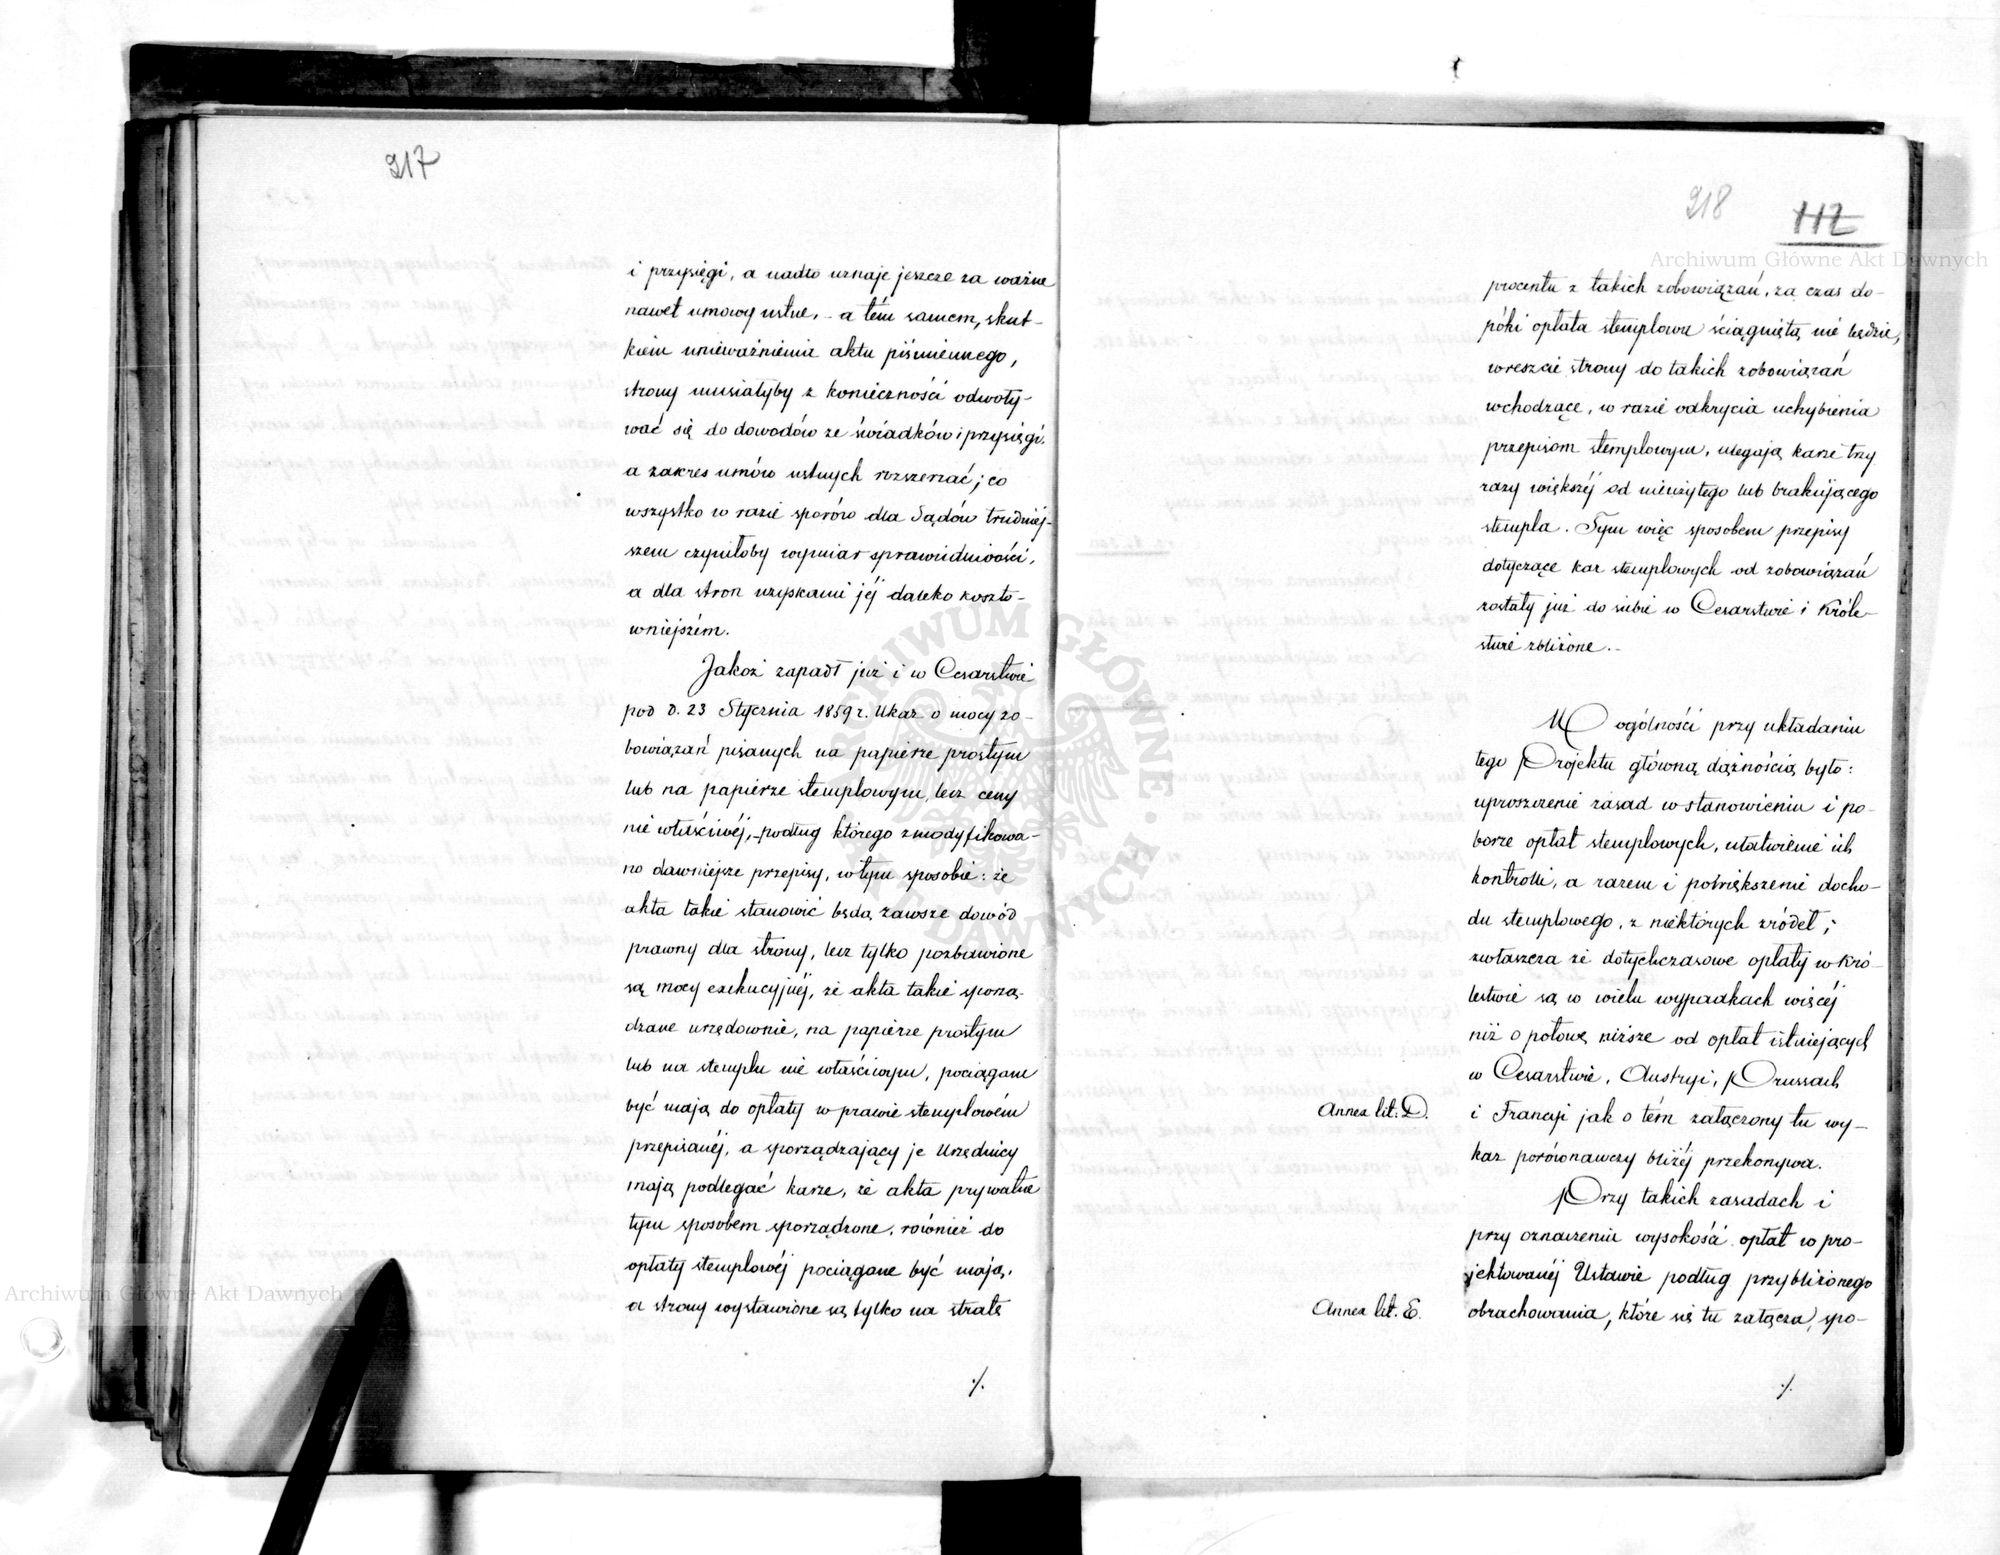 217
i przysięgi, a nadto uznaje jeszcze za ważne
nawet umowy ustne, - a tém samem, skut-
kiem unieważnienia aktu piśmiennego,
strony musiałyby z konieczności odwoły-
wać się do dowodów ze świadków i przysięgi,
a zakres umów ustnych rozszerzać; co
wszystko w razie sporów dla Sądów trudniej-
szem czyniłoby wymiar sprawiedliwości,
a dla stron uzyskanie jéj daleko koszto-
wniejszém.
Jakoż zapadł już i w Cesarstwie
pod d. 23 Stycznia 1859 r. Ukaz o mocy zo-
bowiązań pisanych na papierze prostym
lub na papierze stemplowym, lecz ceny
nie właściwéj, - podług którego zmodyfikowa-
no dawniejsze przepisy, w tym sposobie: że
akta takie stanowić będą zawsze dowód
prawny dla strony, lecz tylko pozbawione
są mocy exekucyjnéj, że akta takie sporzą-
dzane urzędownie, na papierze prostym
lub na stemplu nie właściwym, pociągane
być mają do opłaty w prawie stemplowém
przepisanéj, a sporządzający je Urzędnicy
mają podlegać karze, że akta prywatne
tym sposobem sporządzone, również do
opłaty stemplowéj pociągane być mają,
a strony wystawione są tylko na stratę
./.
218
112
procentu z takich zobowiązań, za czas do-
póki opłata stemplowa ściągniętą nie będzie,
wreszcie strony do takich zobowiązań
wchodzące, w razie odkrycia uchybienia
przepisom stemplowym, ulegają karze trzy
razy większéj od nieużytego lub brakującego
stempla. Tym więc sposobem przepisy
dotyczące kar stemplowych od zobowiązań
zostały już do siebie w Cesarstwie i Króle-
stwie zbliżone. -
W ogólności przy układaniu
tego Projektu główną dążnością było:
uproszczenie zasad w stanowieniu i po-
borze opłat stemplowych, ułatwienie ich
kontrolli, a razem i powiększenie docho-
du stemplowego, z niektórych źródeł;
zwłaszcza że dotychczasowe opłaty w Kró-
lestwie są w wielu wypadkach więcéj
niż o połowę niższe od opłat istniejących
w Cesarstwie, Austryi, Prussach
Annex lit. D.
i Francyi jak o tém załączony tu wy-
kaz porównawczy bliżéj przekonywa.
Przy takich zasadach i
przy oznaczeniu wysokości opłat w pro-
jektowanéj Ustawie podług przybliżonego
Annex lit. E.
obrachowania, które się tu załącza, spo-
./.
Archiwum Główne Akt Dawnych
Archiwum Główne Akt Dawnych
ARCHIWUM GŁÓWNE AKT DAWNYCH